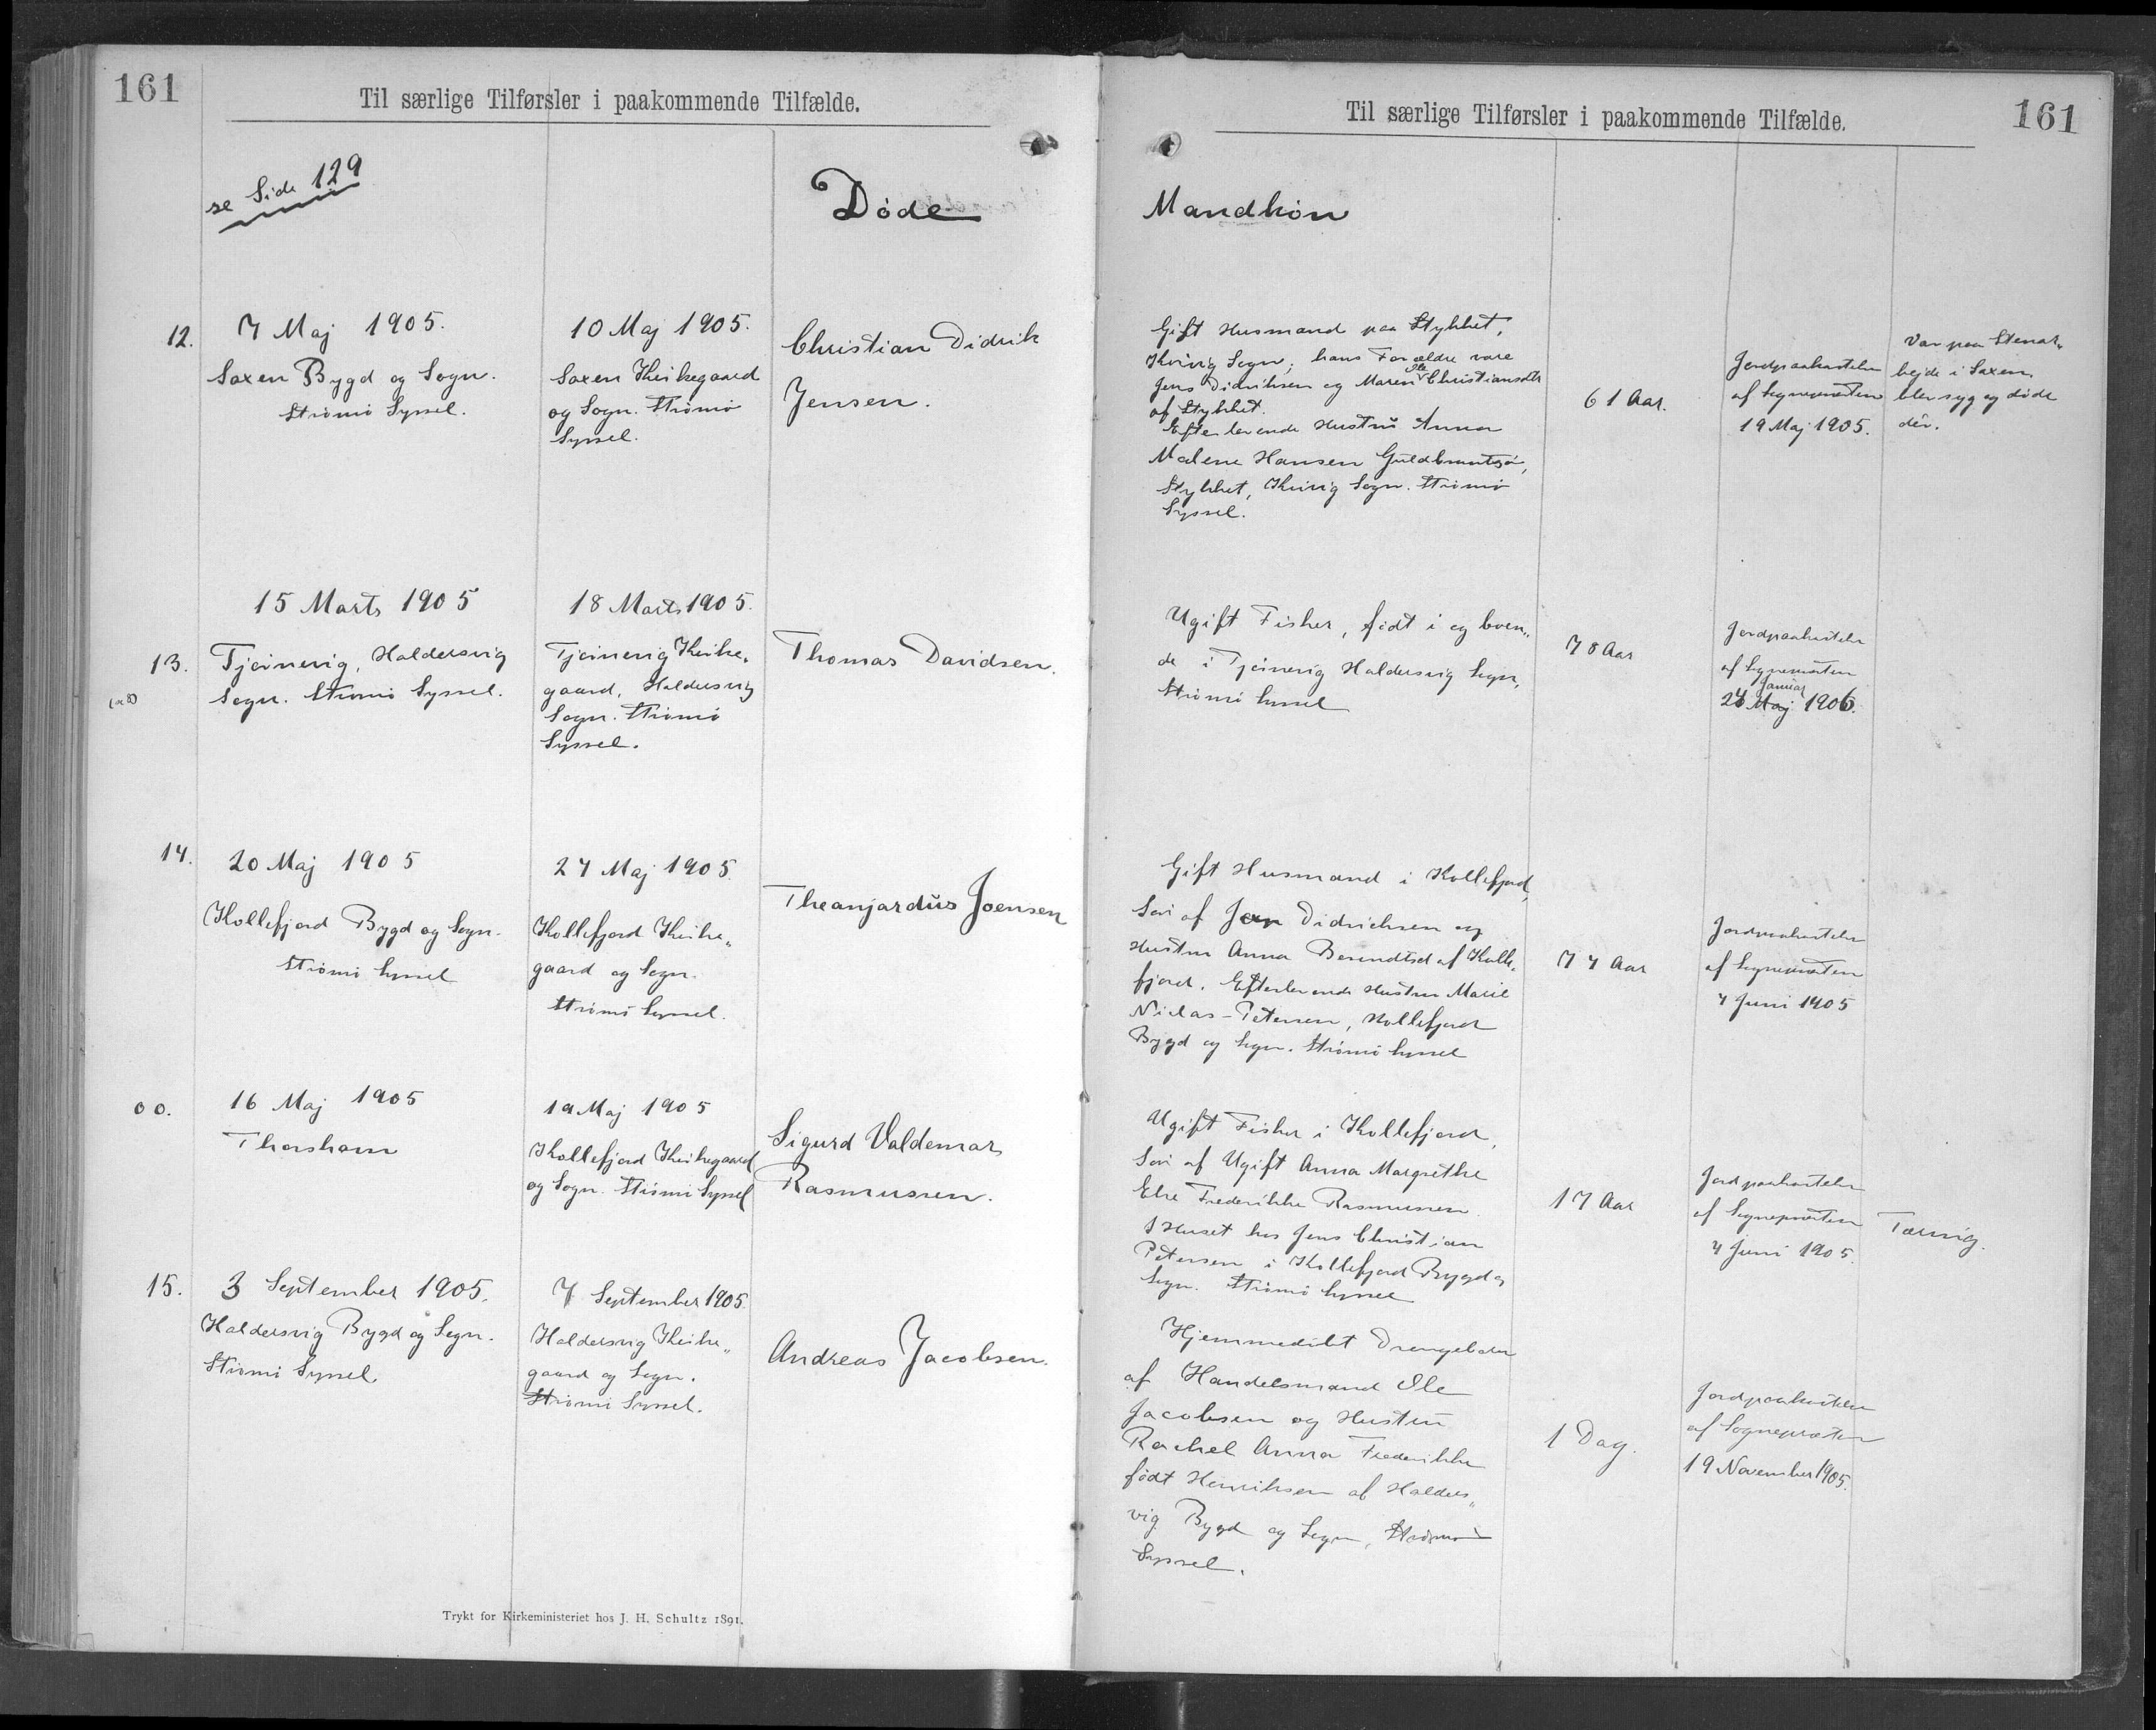 161
Til særlige Tilførsler i paakommende Tilfælde.
se Side 129
Døde
12.
7 Maj 1905.
Saxen Bygd og Sogn.
Strømø Syssel.
10 Maj 1905.
Saxen Kirkegaard
og Sogn. Strømø
Syssel.
Christian Didrik
Jensen.
13.
15 Marts 1905
Tjørnevig, Haldersvig
Sogn. Strømø Syssel.
18 Marts 1905.
Tjørnevig Kirke„
gaard, Haldersvig
Sogn. Strømø
Syssel.
Thomas Davidsen.
14.
20 Maj 1905
Kollefjord Bygd og Sogn.
Strømø Syssel
27 Maj 1905.
Kollefjord Kirke„
gaard og Sogn.
Strømø Syssel.
Theanjardus Joensen
00.
16 Maj 1905
Thorshavn
19 Maj 1905
Kollefjord Kirkegaard
og Sogn. Strømø Syssel
Sigurd Valdemar
Rasmussen.
15.
3 September 1905.
Haldersvig Bygd og Sogn.
Strømø Syssel.
7 September 1905.
Haldersvig Kirke„
gaard og Sogn.
Strømø Syssel.
Andreas Jacobsen.
Trykt for Kirkeministeriet hos J. H. Schultz 1891.
161
Til særlige Tilførsler i paakommende Tilfælde.
Mandkøn
Gift Husmand paa Stykket,
Kvivig Sogn, hans Forældre vare
Jens Didriksen og Maren Christiansdtr
af Stykket.
Efterlevende Hustru Anna
Malene Hansen
Stykket, Kvivig Sogn. Strømø
Syssel.
61 Aar.
Jordpaakastelse
af Sognepræsten
19 Maj 1905.
Var paa Stenar„
bejde i Saxen,
blev syg og døde
dér.
Ugift Fisker, født i og boen„
de i Tjørnevig Haldersvig Sogn,
Strømø Syssel
78 Aar
Jordpaakastelse
af Sognepræsten
Januar
24 Maj 1906.
Gift Husmand i Kollefjord,
Søn af Didrichsen og
Hustru Anna Berendtsd af Kolle„
fjord. Efterlevende Hustru Marie
Niclas-Petersen, Kollefjord
Bygd og Sogn. Strømø Syssel
77 Aar
Jordpaakastelse
af Sognepræsten
4 Juni 1905
Ugift Fisker i Kollefjord,
Søn af Ugift Anna Margrethe
Else Frederikke Rasmussen
I Huset hos Jens Christian
Petersen i Kollefjord Bygd og
Sogn. Strømø Syssel
17 Aar
Jordpaakastelse
af Sognepræsten
4 Juni 1905.
Tæring.
Hjemmedøbt Drengebarn
af Handelsmand Ole
Jacobsen og Hustru
Rachel Anna Frederikke
født Henriksen af Halders„
vig Bygd og Sogn, Strømø
Syssel.
1 Dag.
Jordpaakastelse
af Sognepræsten
19 November 1905.